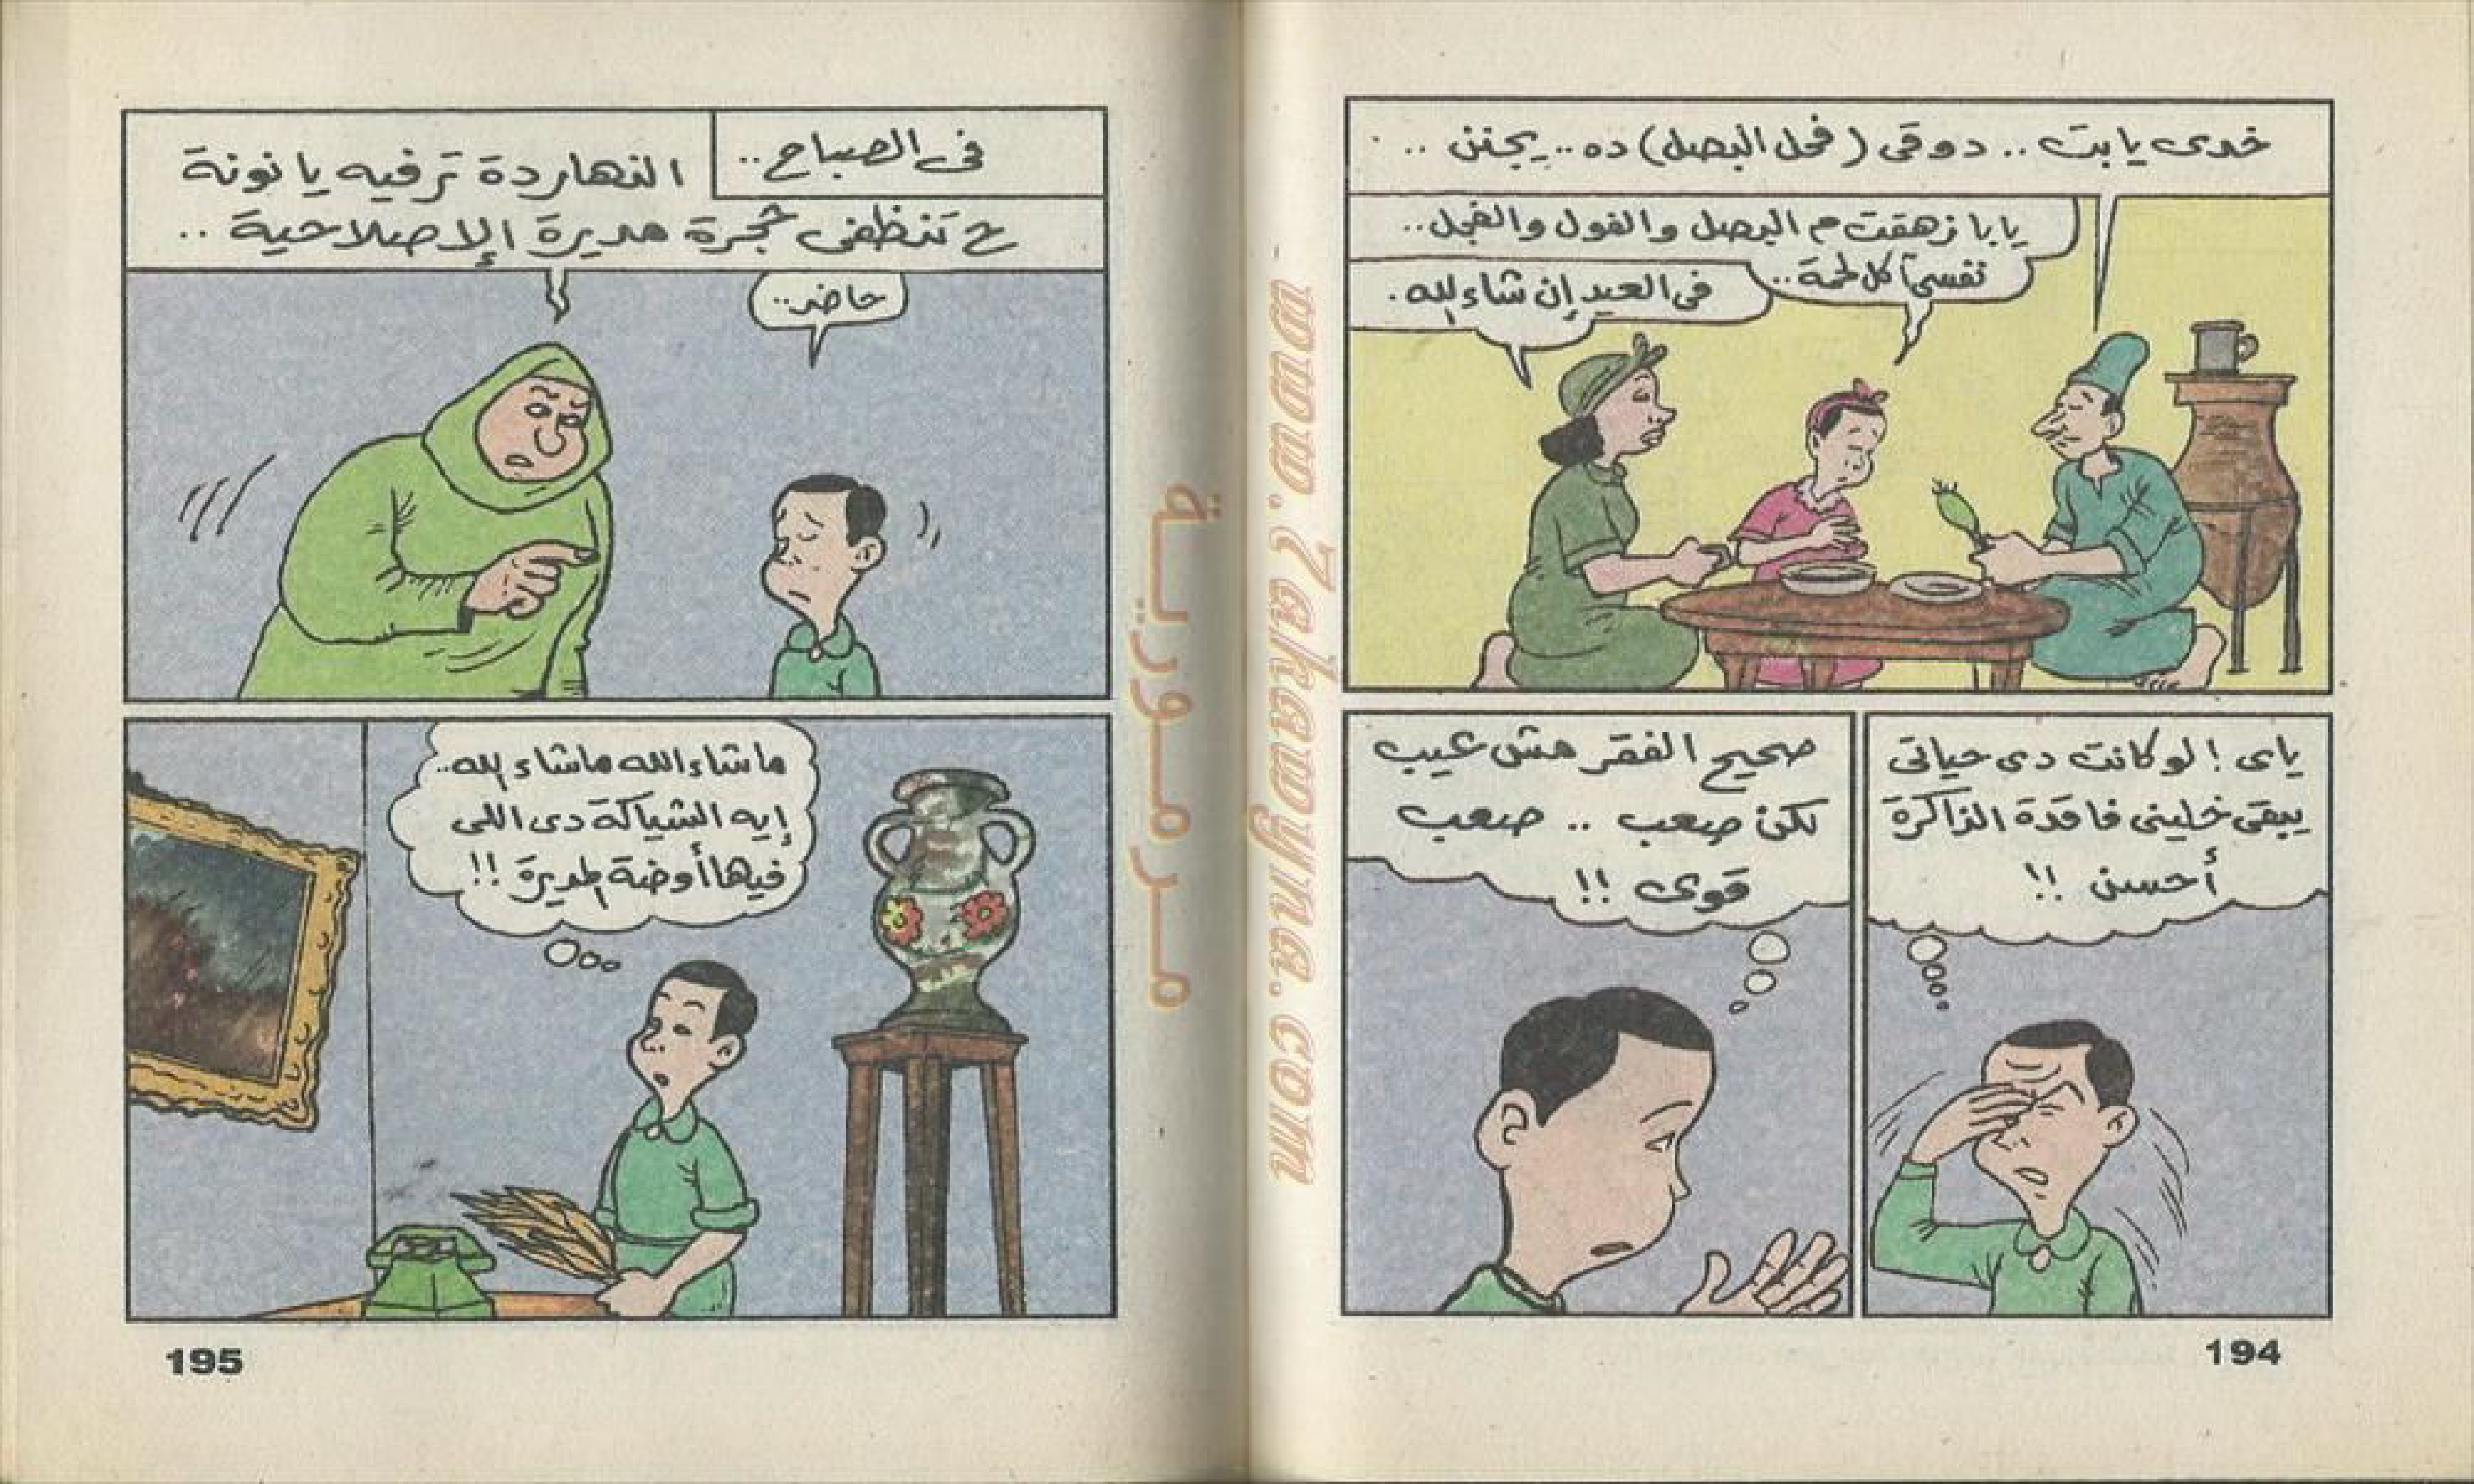 خدى يا بت .. دوقى (فحل البصل) ده .. يجنن ..
يابا زهقت م البصل والفول والفجل ..
نفسى آكل لحمة ..
فى العيد إن شاء الله .
ياى ! لو كانت دى حياتى
يبقى خلينى فاقدة الذاكرة
أحسن !!
صحيح الفقر مش عيب
لكن صعب .. صعب
قوى !!
194
فى الصباح ..
النهاردة ترفيه يا نونة
ح تنظفى حجرة مديرة الإصلاحية ..
حاضر ..
ما شاء الله ما شاء الله ..
إيه الشياكة دى اللى
فيها أوضة المديرة !!
195
مرمورية
www.7akawyna.com